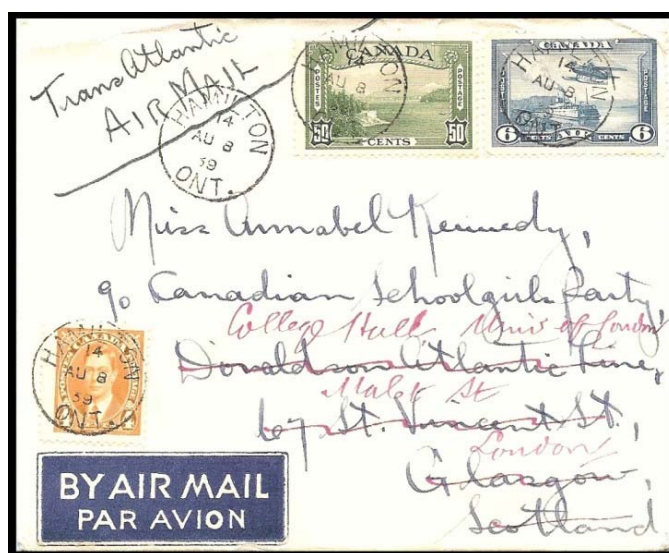 TransAtlantic
AIR MAIL
HAMILTON
14
AU 8
39
ONT.
CANADA
POSTES POSTAGE
50 CENTS 50
HAMILTON
14
AU 8
CANADA
POSTES POSTAGE
6 CENTS 6
HAMILTON
14
AU 8
ONT.
Miss Annabel Kennedy,
c/o Canadian Schoolgirls Party,
College Hall Univ of London
Donaldson Atlantic Line,
Malet St
67 St. Vincent St.,
London
Glasgow,
Scotland
HAMILTON
14
AU 8
39
ONT.
BY AIR MAIL
PAR AVION